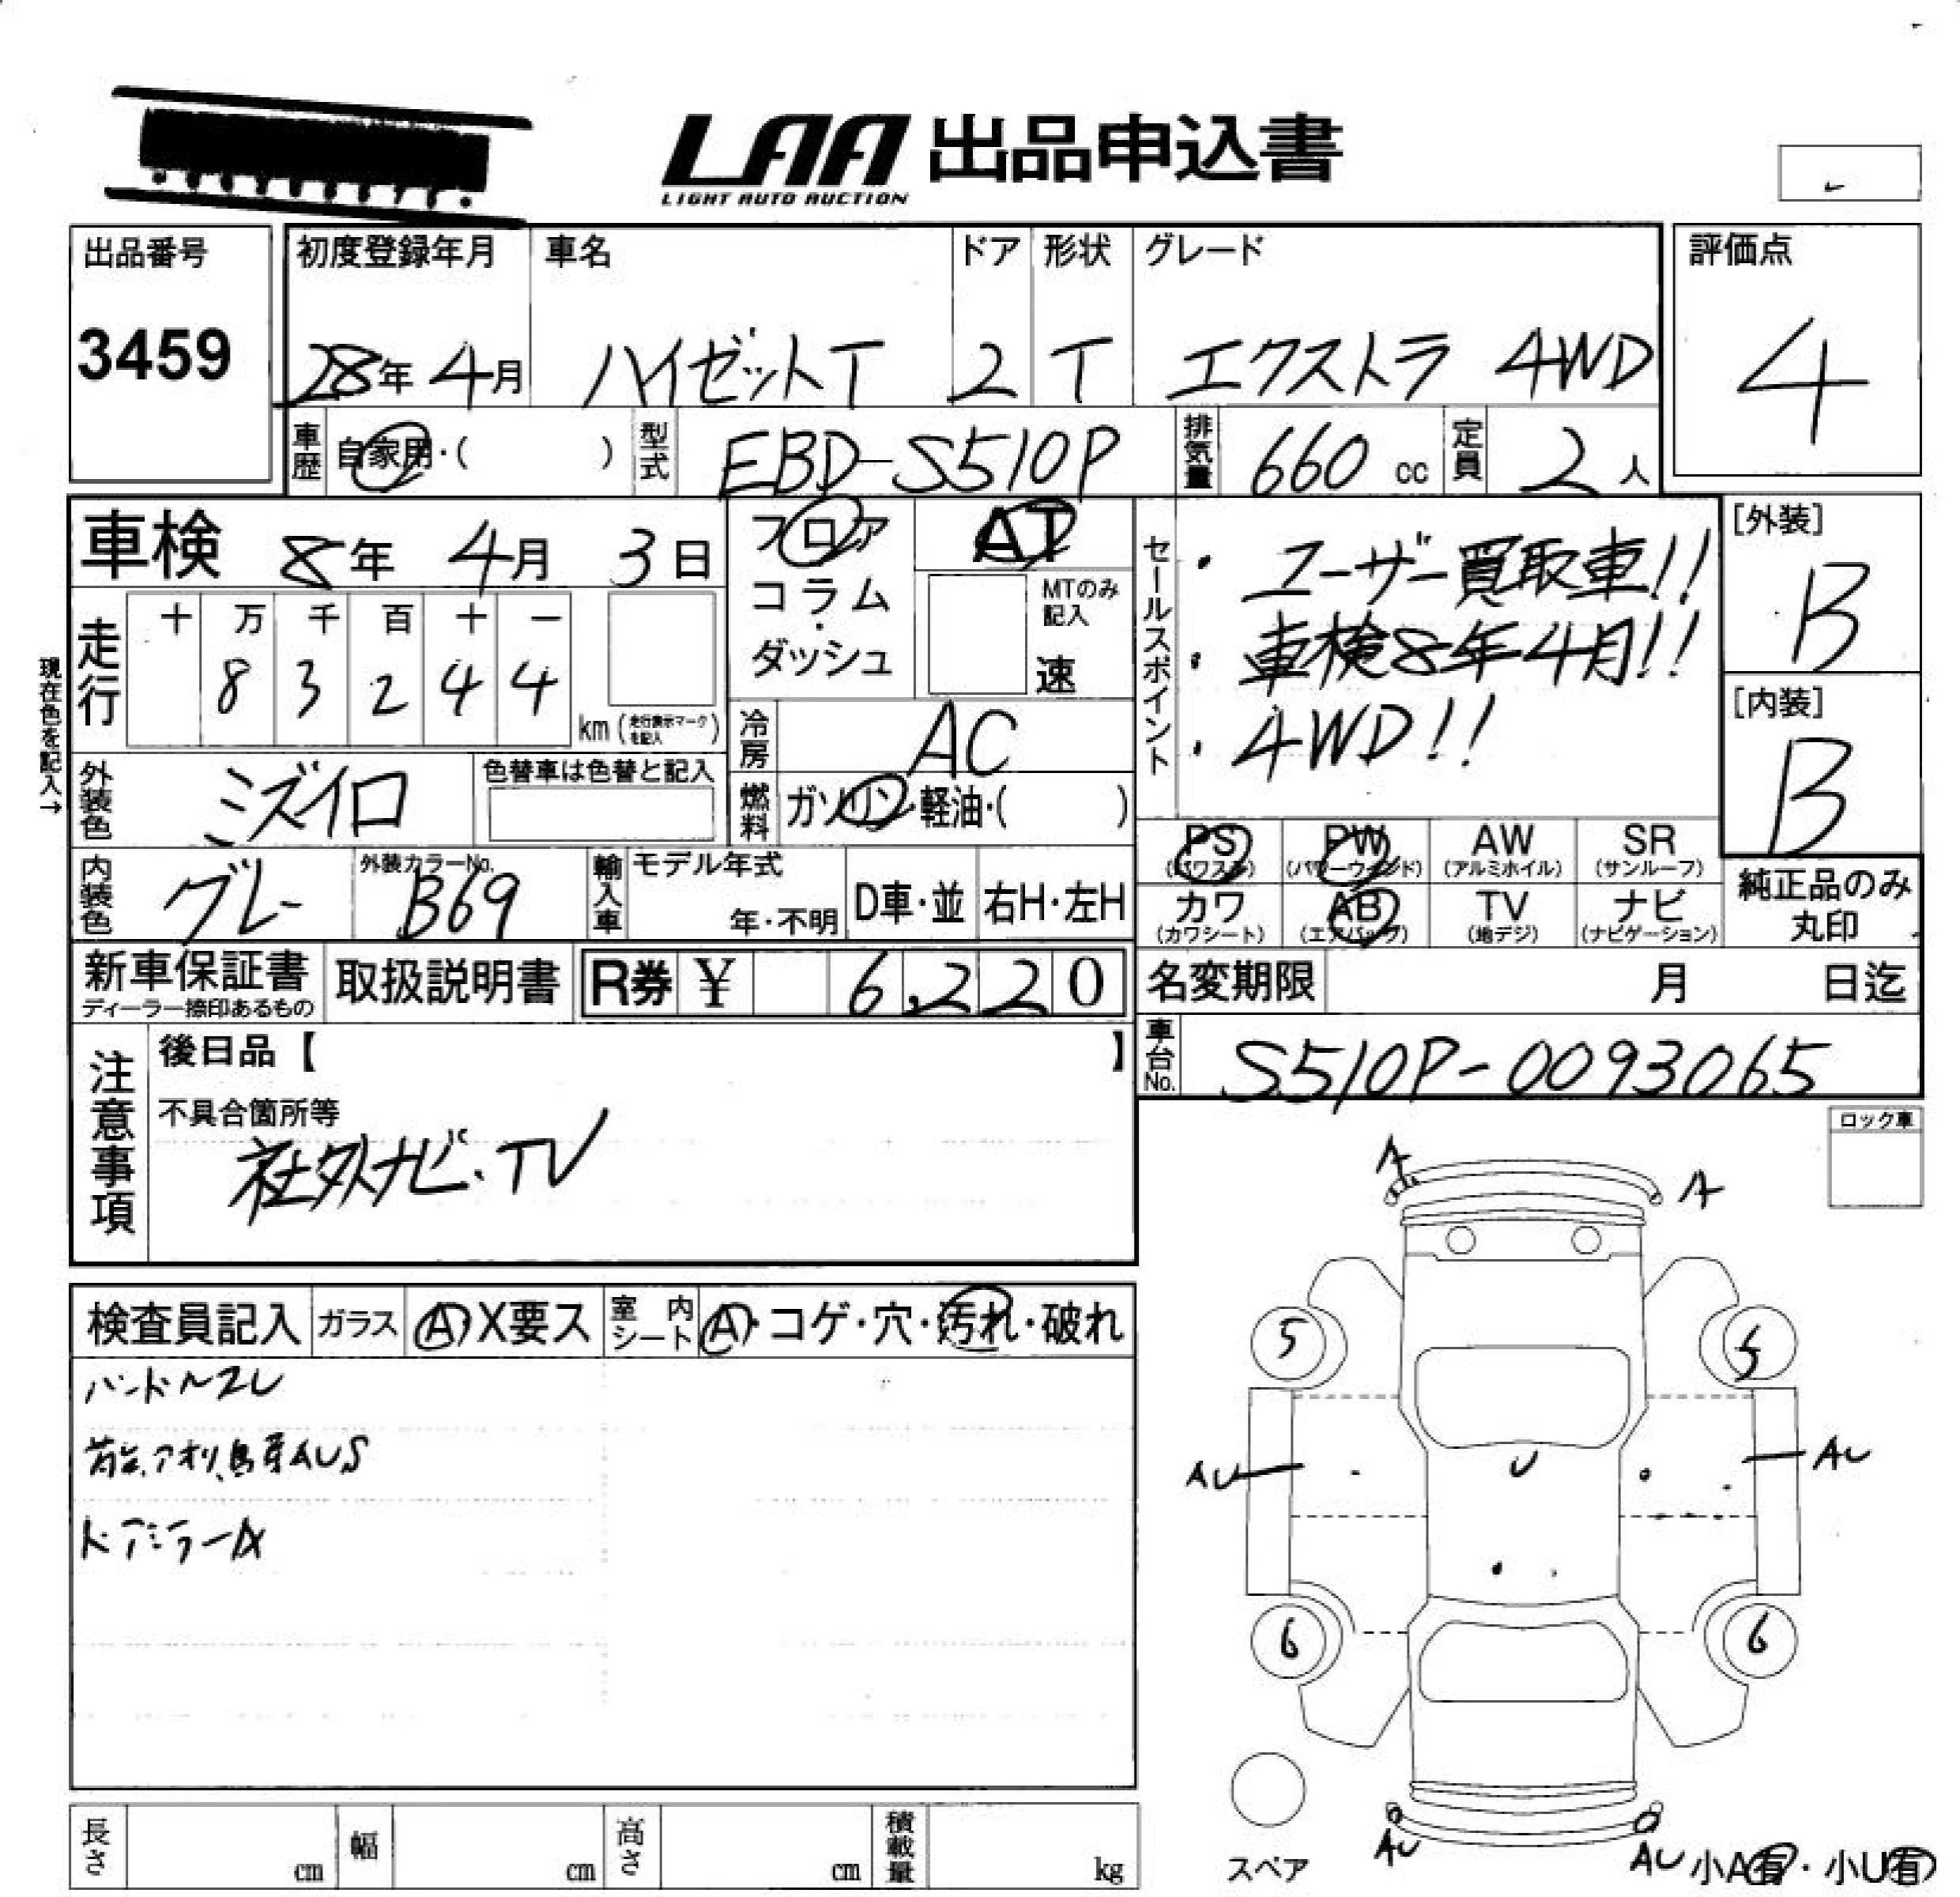 LAA 出品申込書
LIGHT AUTO AUCTION
出品番号
3459
初度登録年月 車名 ドア 形状 グレード
28年 4月 ハイゼットT 2 T エクストラ 4WD
評価点
4
車歴 自家用・( ) 型式 EBD-S510P 排気量 660 cc 定員 2 人
車検 8年 4月 3日
フロア
コラム
・
ダッシュ
AT
MTのみ
記入
速
セールスポイント
・ユーザー買取車!!
・車検8年4月!!
・4WD!!
[外装]
B
[内装]
B
現在色を記入→
走行
十 万 千 百 十 一
8 3 2 4 4
km (走行表示マークを記入)
冷房 AC
外装色 ミズイロ 色替車は色替と記入
燃料 ガソリン・軽油・( )
PS AB PW AW SR
(パワステ) (パワーウィンド) (アルミホイル) (サンルーフ)
カワ AB TV ナビ
(カワシート) (エアバッグ) (地デジ) (ナビゲーション)
純正品のみ
丸印
内装色 グレー 外装カラーNo. B69
輸入車 モデル年式 年・不明 D車・並 右H・左H
新車保証書
ディーラー捺印あるもの
取扱説明書 R券 ¥ 6,220
名変期限 月 日迄
車台No. S510P-0093065
注意事項
後日品【 】
不具合箇所等
社外ナビ・TV
ロック車
検査員記入 ガラス A・X要ス 室内シート A・コゲ・穴・汚れ・破れ
ハンドルスレ
荷台、アオリ、鳥居AUS
ドアミラーA
A
A
5
5
AU
U
AU
6
6
スペア
AU
AU
小A有・小U有
長さ cm 幅 cm 高さ cm 積載量 kg